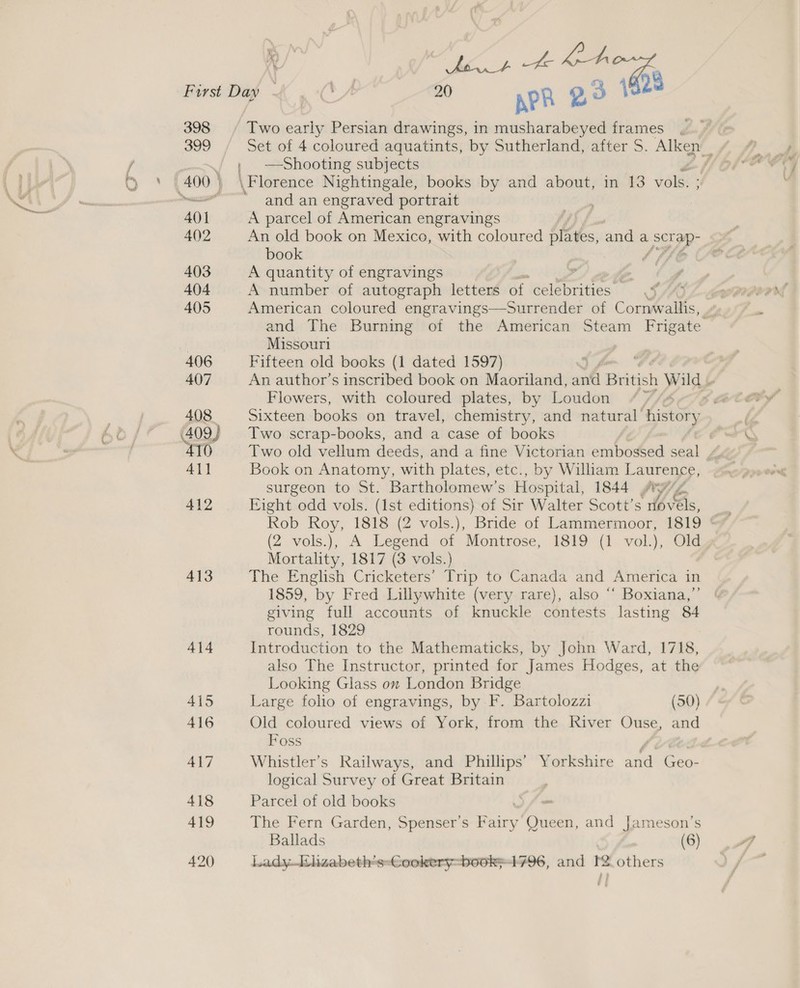 First Day 20 APR 23
398 Two early Persian drawings, in musharabeyed frames
399 Set of 4 coloured aquatints, by Sutherland, after S. Alken
—Shooting subjects
400 Florence Nightingale, books by and about, in 13 vols. ;
and an engraved portrait
401 A parcel of American engravings
402 An old book on Mexico, with coloured plates, and a scrap-
book
403 A quantity of engravings
404 A number of autograph letters of celebrities
405 American coloured engravings—Surrender of Cornwallis,
and The Burning of the American Steam Frigate
Missouri
406 Fifteen old books (1 dated 1597)
407 An author's inscribed book on Maoriland, and British Wild
Flowers, with coloured plates, by Loudon
408 Sixteen books on travel, chemistry, and natural history
409 Two scrap-books, and a case of books
410 Two old vellum deeds, and a fine Victorian embossed seal
411 Book on Anatomy, with plates, etc., by William Laurence,
surgeon to St. Bartholomew's Hospital, 1844
412 Eight odd vols. (1st editions) of Sir Walter Scott's novels,
Rob Roy, 1818 (2 vols.), Bride of Lammermoor, 1819
(2 vols.), A Legend of Montrose, 1819 (1 vol.), Old
Mortality, 1817 (3 vols.)
413 The English Cricketers' Trip to Canada and America in
1859, by Fred Lillywhite (very rare), also “ Boxiana,”
giving full accounts of knuckle contests lasting 84
rounds, 1829
414 Introduction to the Mathematicks, by John Ward, 1718,
also The Instructor, printed for James Hodges, at the
Looking Glass on London Bridge
415 Large folio of engravings, by F. Bartolozzi (50)
416 Old coloured views of York, from the River Ouse, and
Foss
417 Whistler's Railways, and Phillips' Yorkshire and Geo-
logical Survey of Great Britain
418 Parcel of old books
419 The Fern Garden, Spenser's Fairy Queen, and Jameson's
Ballads (6)
420 Lady Elizabeth's Cookery book, 1796, and 12 others